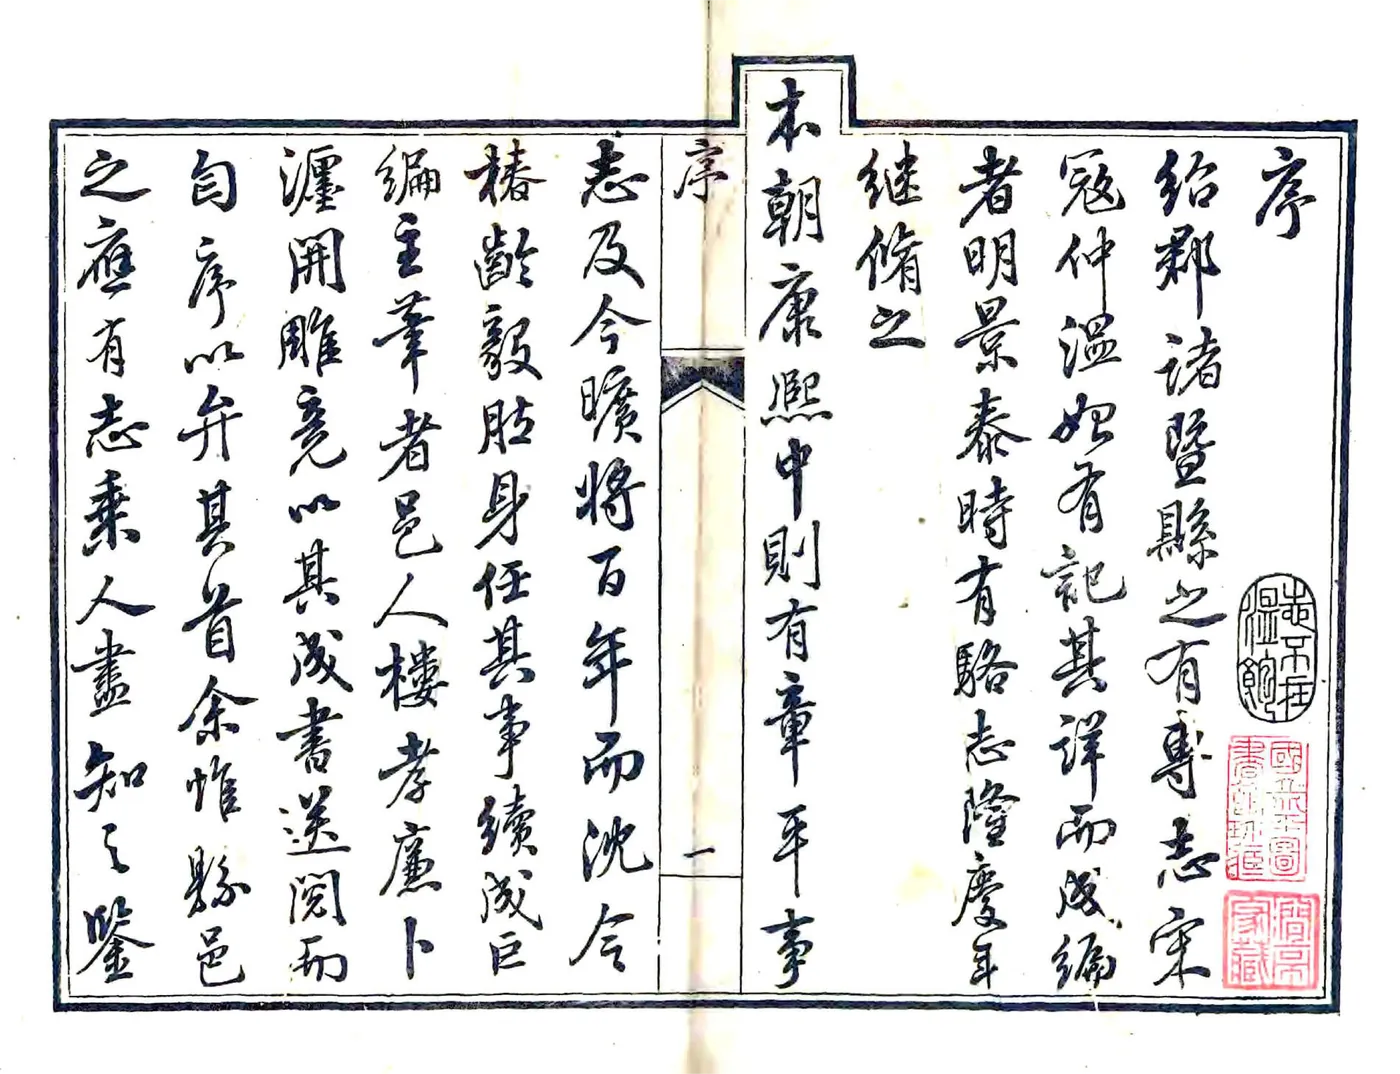 序
紹郡諸暨縣之有專志宋
寇仲溫始有記其詳而成編
者明景泰時有駱志隆慶年
继脩之
本朝康熙中則有章平事
志及今曠將百年而沈令
椿齡毅肰身任其事續成巨
編主筆者邑人樓孝廉卜
瀍開雕竟以其成書送閱而
匄序以弁其首余惟縣邑
之應有志乘人盡知之鑒
序
一
志不在溫飽
國立北平圖書館珍藏